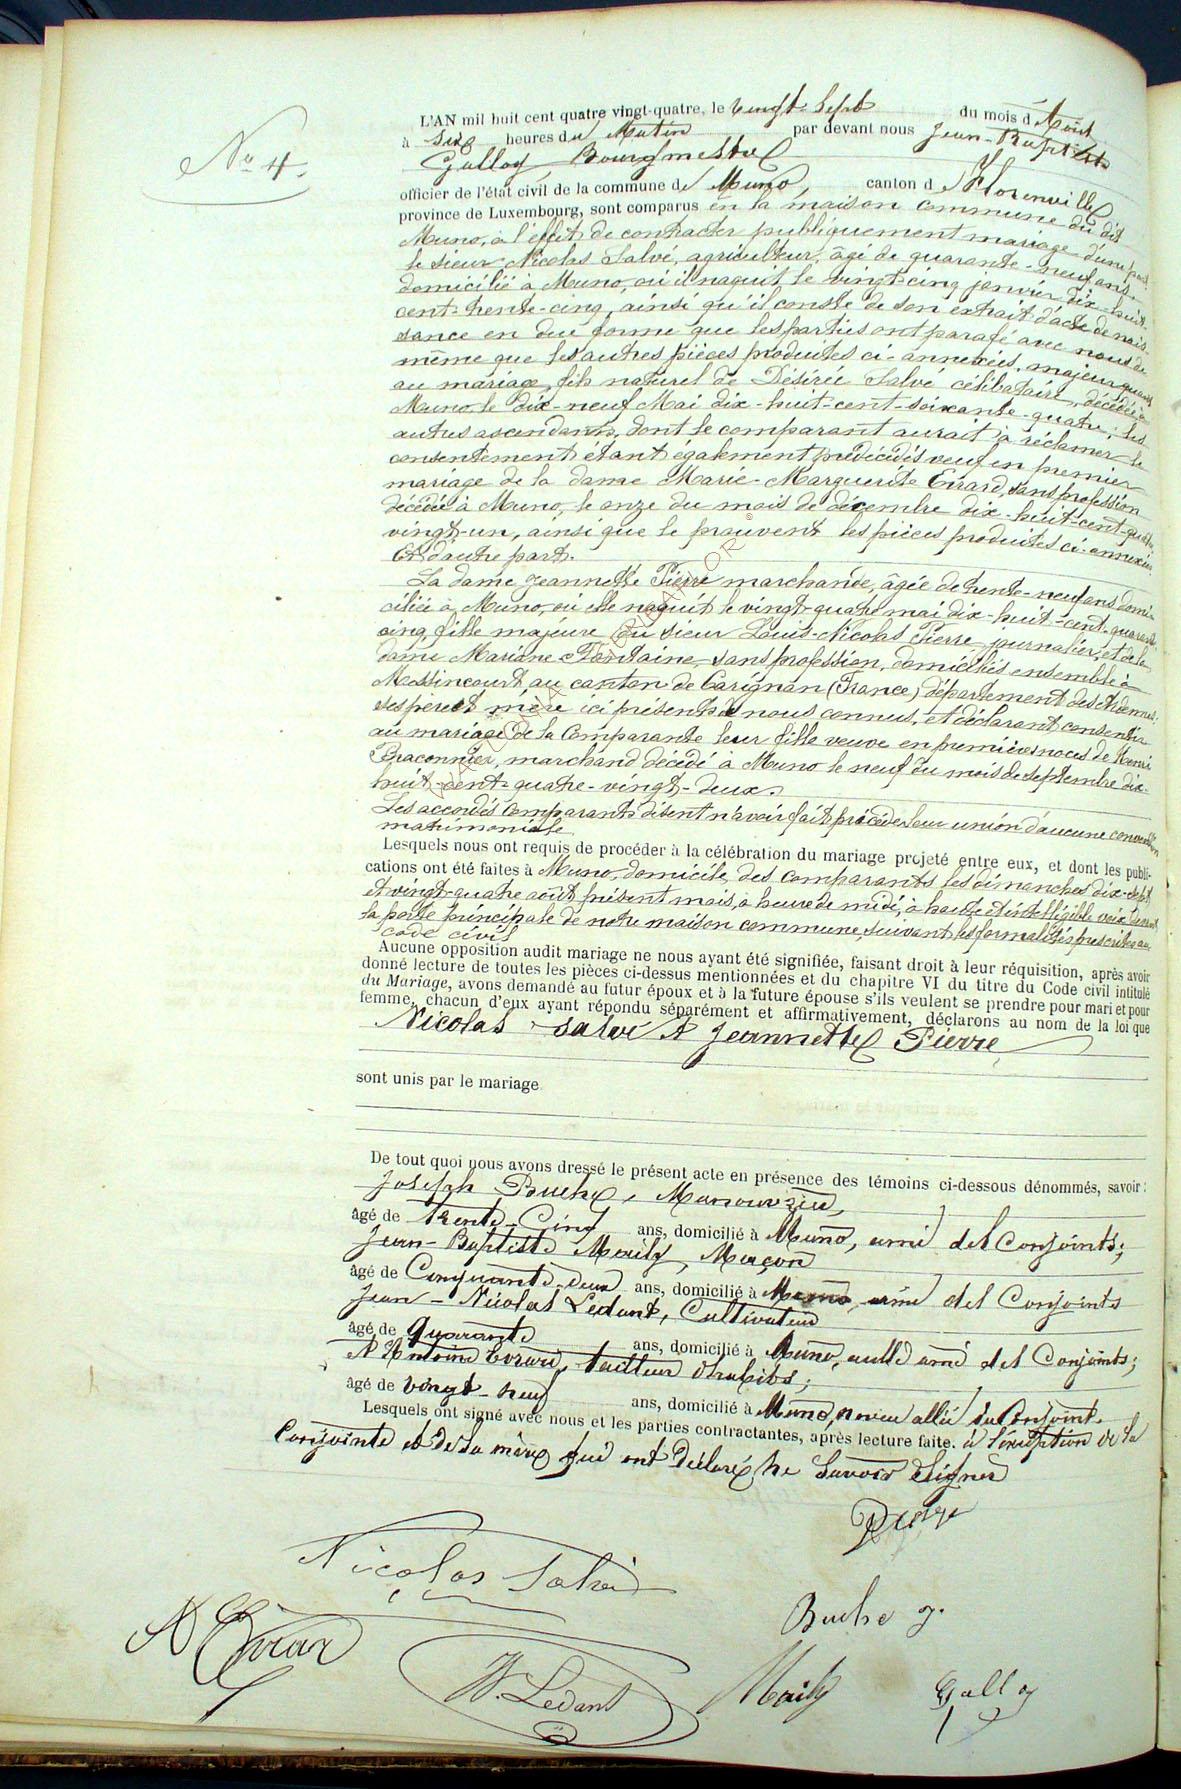 No 4.
L'AN mil huit cent quatre vingt-quatre, le vingt-sept du mois d'Août
à six heures du Matin par devant nous Jean-Baptiste
Galloy, Bourgmestre
officier de l'état civil de la commune de Muno, canton de Florenville
province de Luxembourg, sont comparus en la maison commune du dit
Muno, à l'effet de contracter publiquement mariage d'une part
le sieur Nicolas Salvé, agriculteur, âgé de quarante-neuf ans
domicilié à Muno, où il naquit le vingt-cinq janvier dix-huit-
cent-trente-cinq, ainsi qu'il conste de son extrait d'acte de nais-
sance en due forme que les parties ont parafé avec nous de
même que les autres pièces produites ci-annexées, majeur quant
au mariage, fils naturel de Désirée Salvé célibataire, décédée à
Muno le dix-neuf Mai dix-huit-cent-soixante-quatre; les
autres ascendants, dont le comparant aurait à réclamer le
consentement étant également prédécédés veuf en premier
mariage de la dame Marie-Marguerite Evrard, sans profession
décédée à Muno, le onze du mois de décembre dix-huit-cent-quatre
vingt-un, ainsi que le prouvent les pièces produites ci-annexées.
Et d'autre part.
La dame Jeannette Pierre marchande, âgée de trente-neuf ans domi-
ciliée à Muno, où elle naquit le vingt-quatre mai dix-huit-cent-quarante
cinq, fille majeure du sieur Louis-Nicolas Pierre, journalier, et de la
dame Mariane Fontaine, sans profession, domiciliés ensemble à
Messincourt, au canton de Carignan (France) département des Ardennes;
ses père et mère ici présents de nous connus, et déclarant consentir
au mariage de la Comparante leur fille veuve en premières noces de Henri
Braconnier, marchand décédé à Muno le neuf du mois de septembre dix-
huit-cent-quatre-vingt-deux.
Les accordés Comparants disent n'avoir fait précéder leur union d'aucune convention
matrimoniale
Lesquels nous ont requis de procéder à la célébration du mariage projeté entre eux, et dont les publi-
cations ont été faites à Muno, domicile des comparants les dimanches dix-sept
et vingt-quatre août présent mois, à heure de midi, à haute et intelligible voix devant
la porte principale de notre maison commune, suivant les formalités prescrites au
code civil
Aucune opposition audit mariage ne nous ayant été signifiée, faisant droit à leur réquisition, après avoir
donné lecture de toutes les pièces ci-dessus mentionnées et du chapitre VI du titre du Code civil intitulé
du Mariage, avons demandé au futur époux et à la future épouse s'ils veulent se prendre pour mari et pour
femme, chacun d'eux ayant répondu séparément et affirmativement, déclarons au nom de la loi que
Nicolas Salvé et Jeannette Pierre
sont unis par le mariage
De tout quoi nous avons dressé le présent acte en présence des témoins ci-dessous dénommés, savoir:
Joseph Buche, Manouvrier,
âgé de Trente-Cinq ans, domicilié à Muno, ami des Conjoints;
Jean-Baptiste Mailly, Maçon
âgé de Cinquante-deux ans, domicilié à Muno, ami des Conjoints
Jean-Nicolas Ledant, Cultivateur
âgé de Quarante ans, domicilié à Muno, ami des Conjoints;
Et Antoine Evrard, tailleur d'habits;
âgé de vingt-neuf ans, domicilié à Muno, neveu allié du Conjoint.
Lesquels ont signé avec nous et les parties contractantes, après lecture faite. à l'exception de la
Conjointe et de sa mère qui ont Déclaré ne Savoir Signer
Nicolas Salvé
Buche J.
A Evrar
N. Ledant
Mailly
Galloy